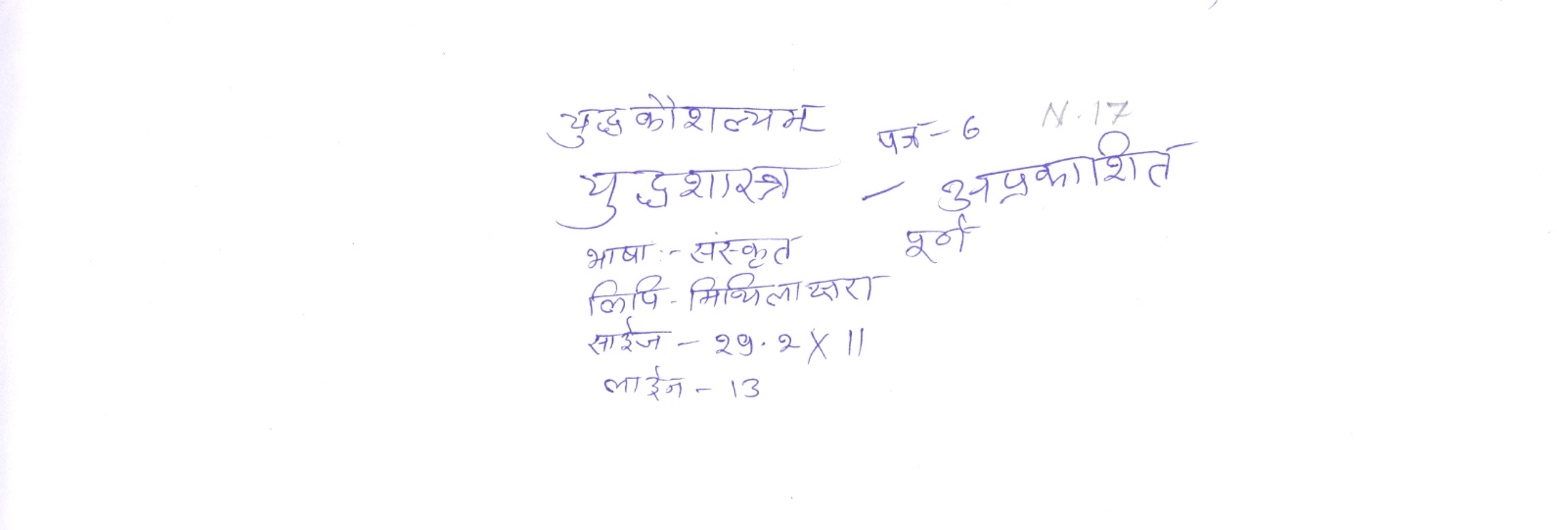 युद्धकौशल्यम् पत्र - 6 N.17
युद्धशास्त्र - अप्रकाशित
पूर्न
भाषा :- संस्कृत
लिपि - मिथिलाक्षरा
साईज - २9.२ X 11
लाईन - 13